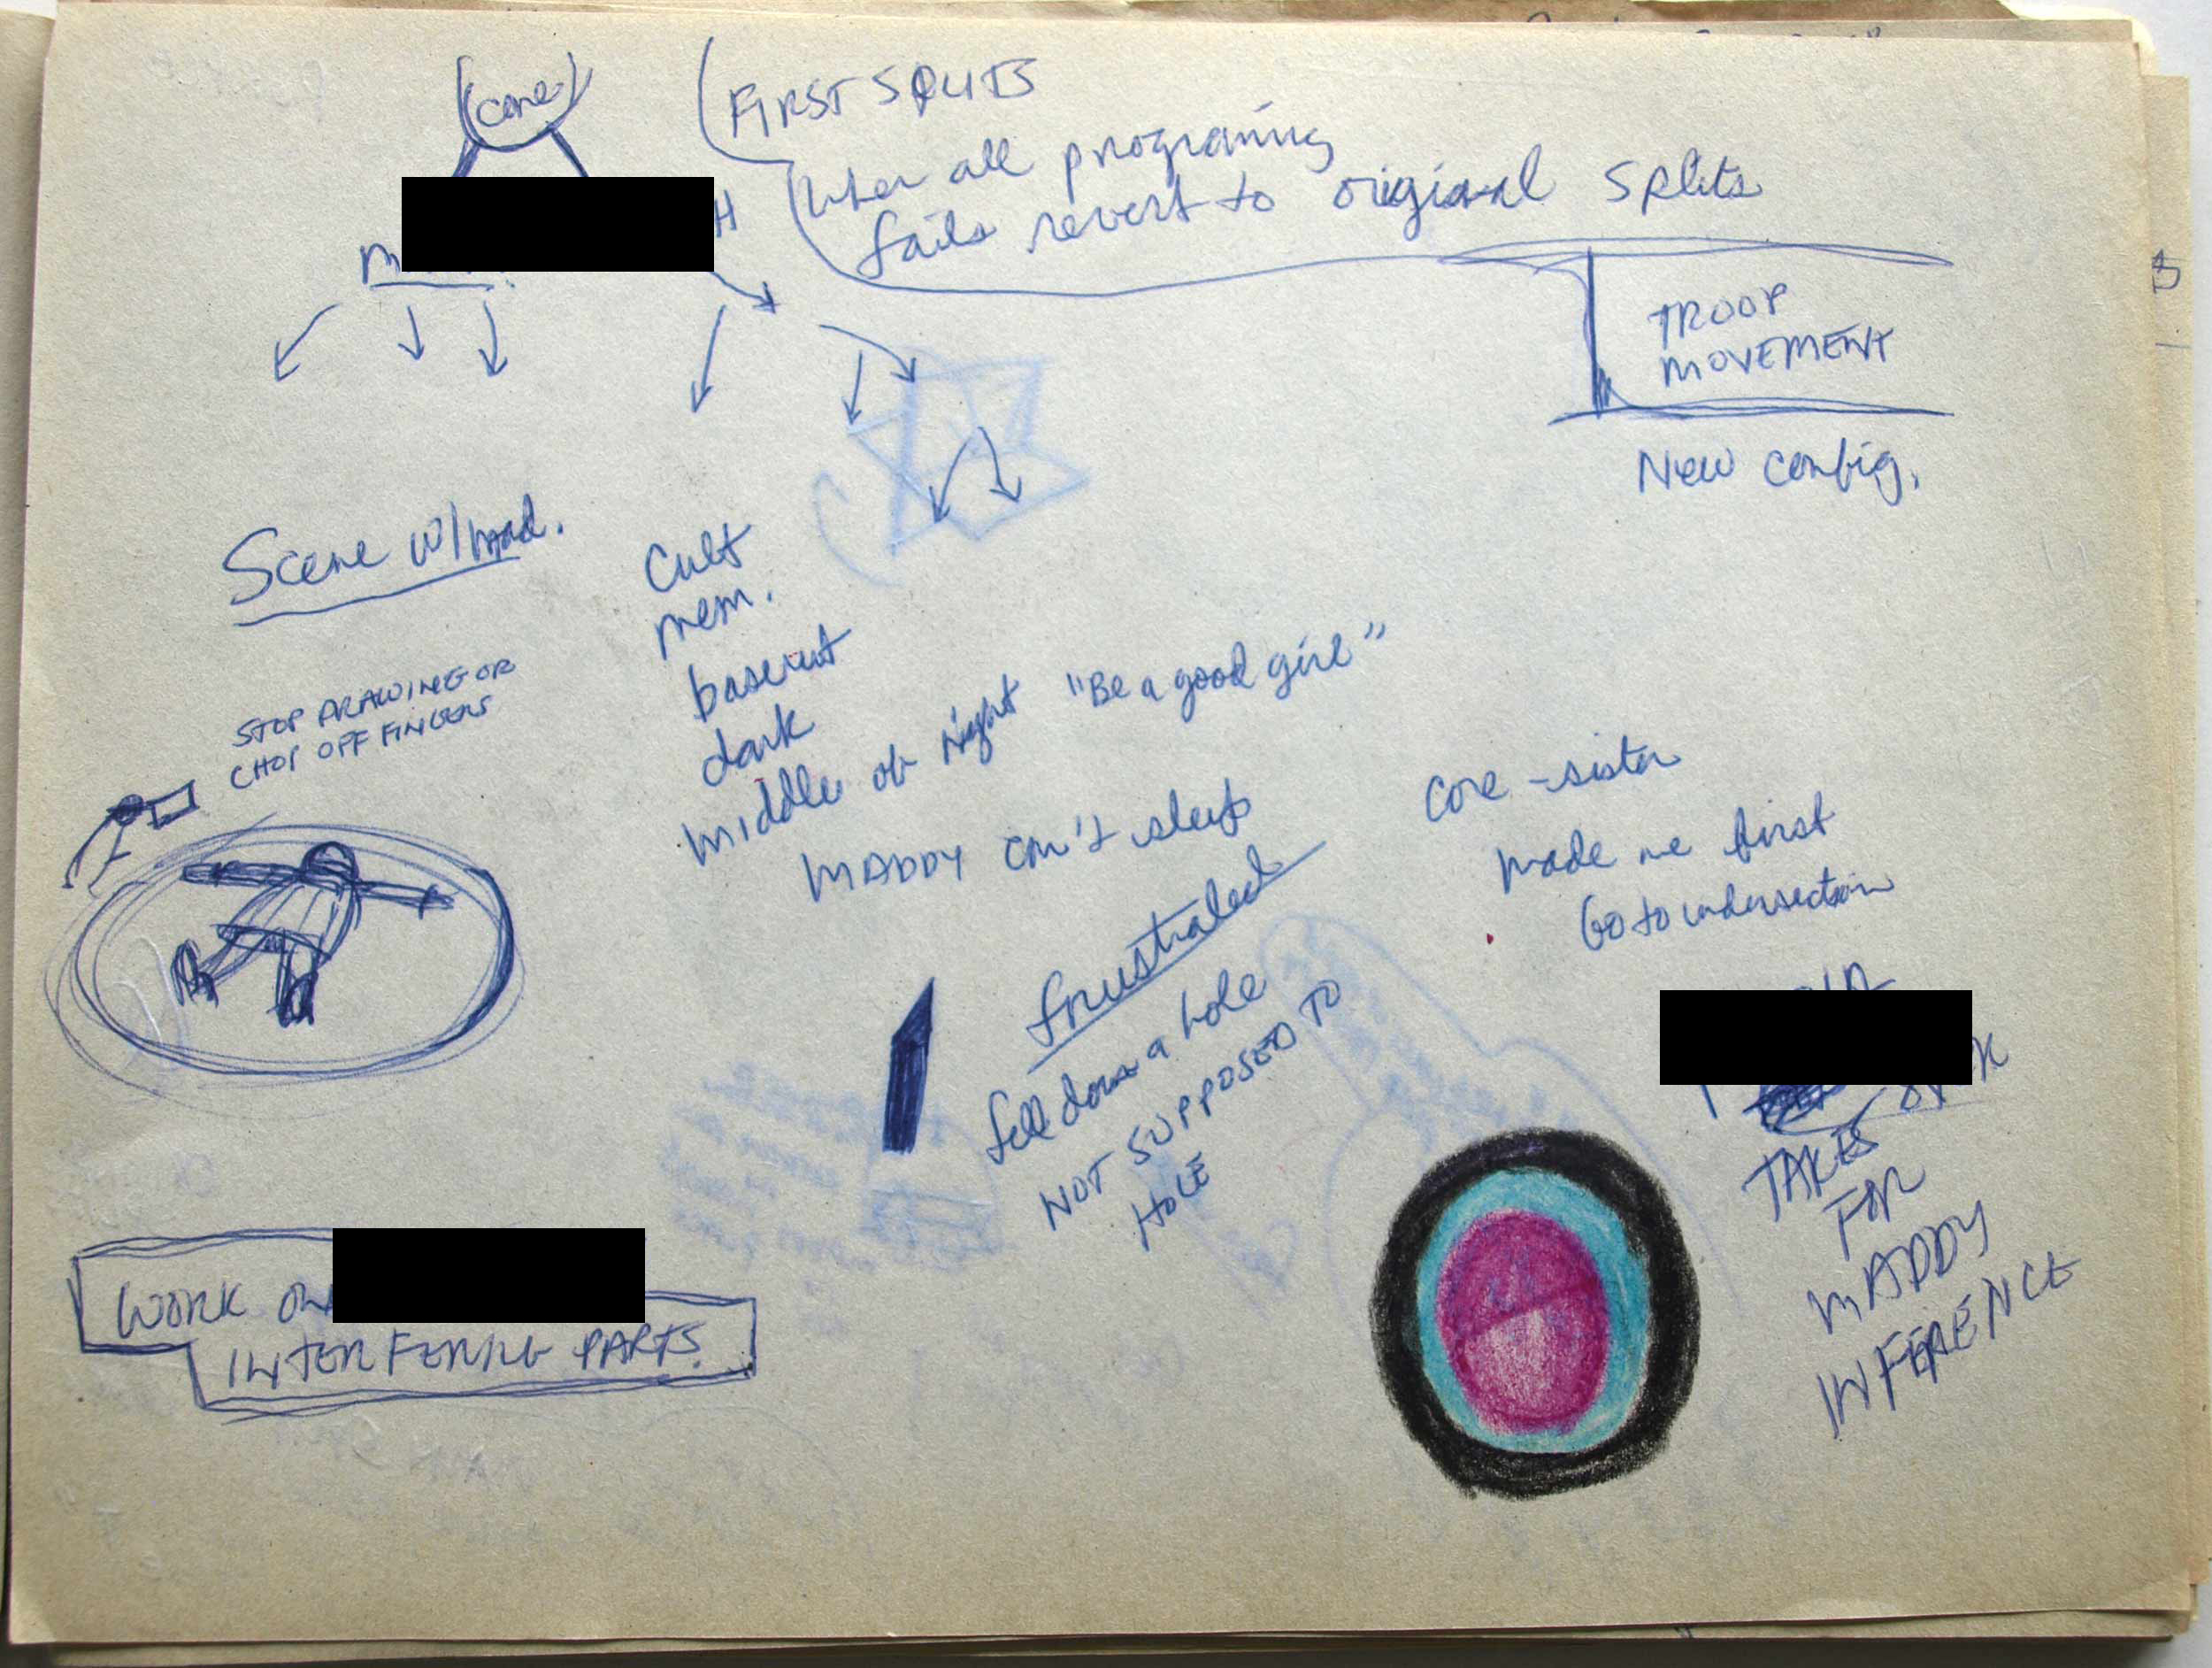 core
FIRST SPLITS
When all programing
fails revert to original splits
M
H
TROOP
MOVEMENT
New config.
Scene w/mad.
Cult
mem.
basemt
dark
middle of night "Be a good girl"
MADDY can't sleep
STOP DRAWING OR
CHOP OFF FINGERS
frustrated
fell down a hole
NOT SUPPOSED TO
HOLE
core - sister
made me first
Go to
TAKES
FOR
MADDY
INFERENCE
WORK ON
INTERFERING PARTS.